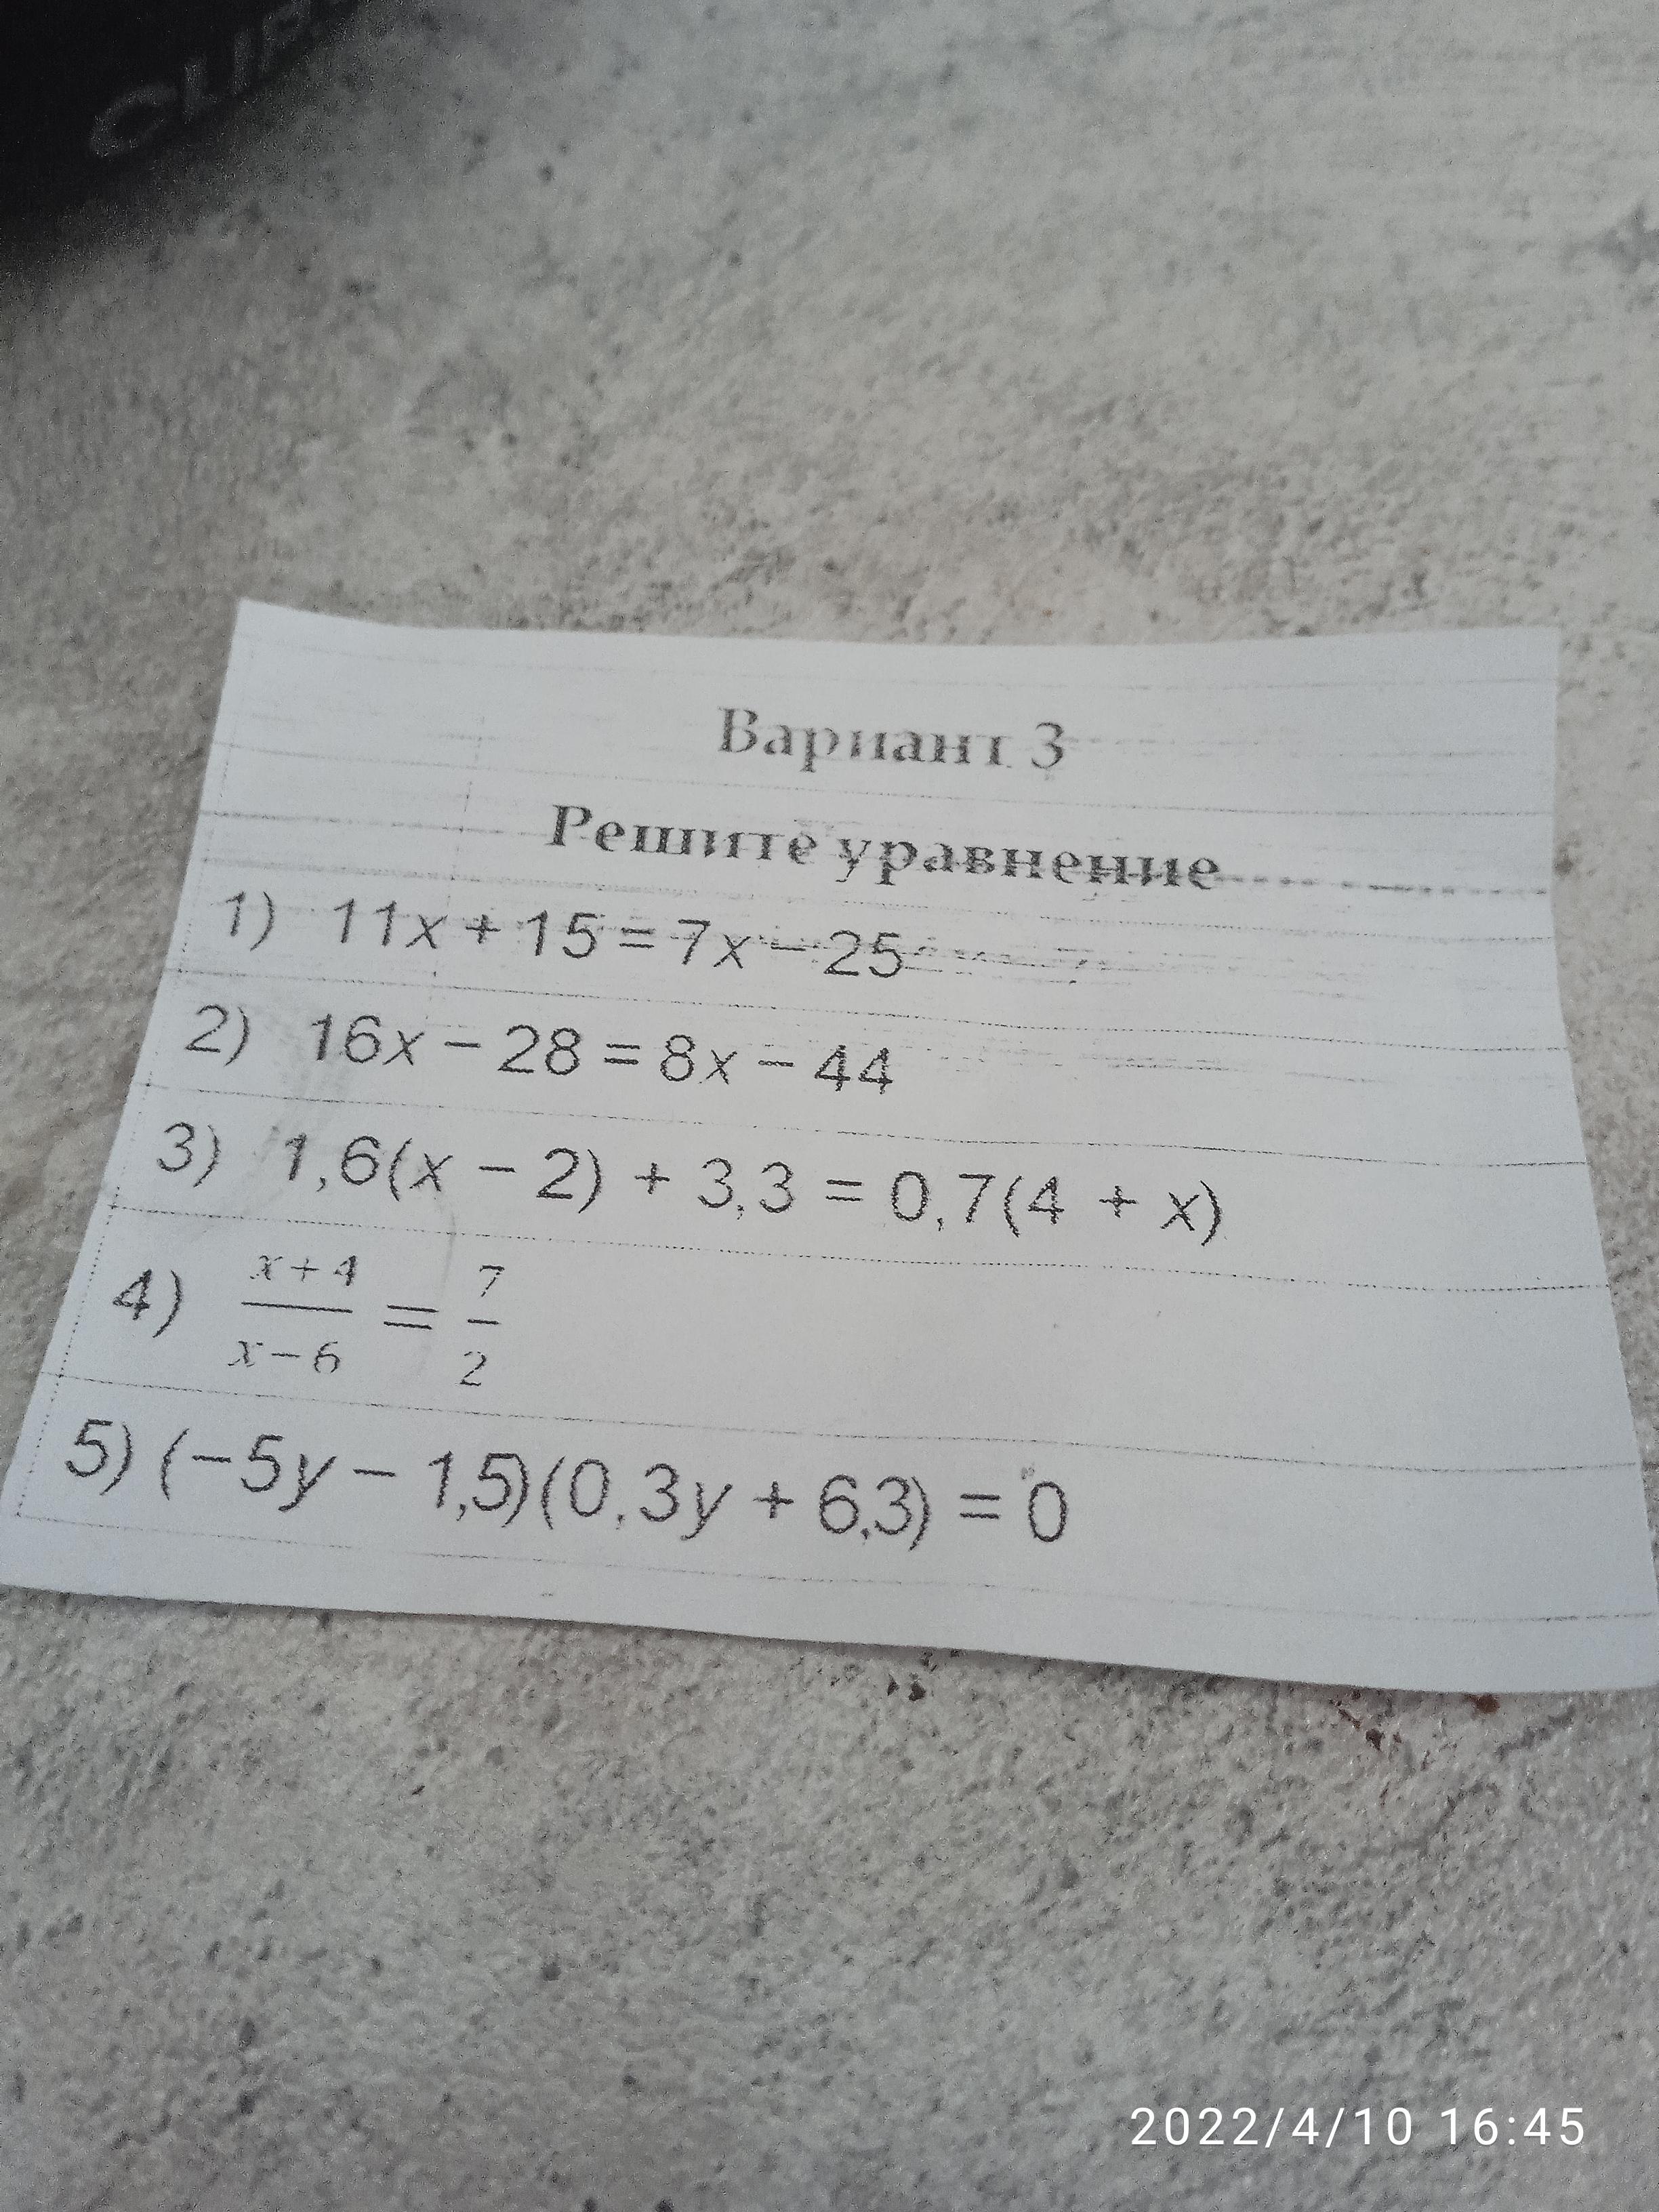 Вариант 3
Решите уравнение
1) 11x + 15 = 7x − 25
2) 16x − 28 = 8x − 44
3) 1,6(x − 2) + 3,3 = 0,7(4 + x)
4) x + 4 / x − 6 = 7 / 2
5) (−5y − 1,5)(0,3y + 6,3) = 0
2022/4/10 16:45